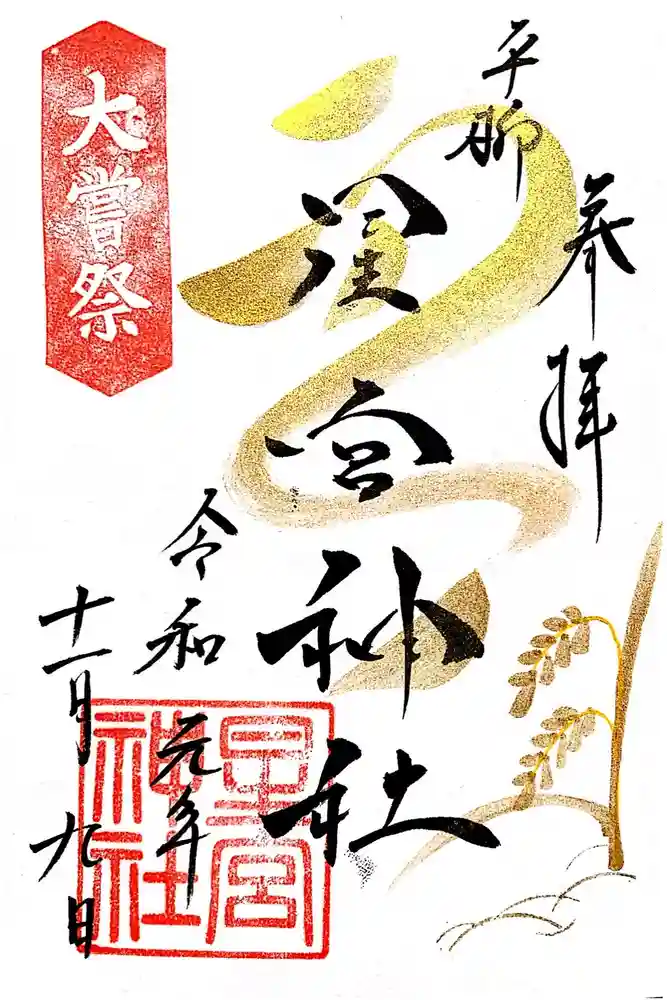 奉拝
平柳
星宮神社
令和元年
十一月九日
大嘗祭
星宮
神社